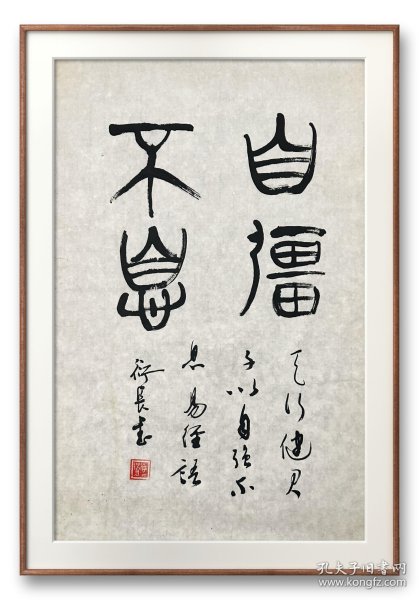 自彊
不息
天行健君
子以自強不
息易經語
長書
孔夫子旧书网
www.kongfz.com